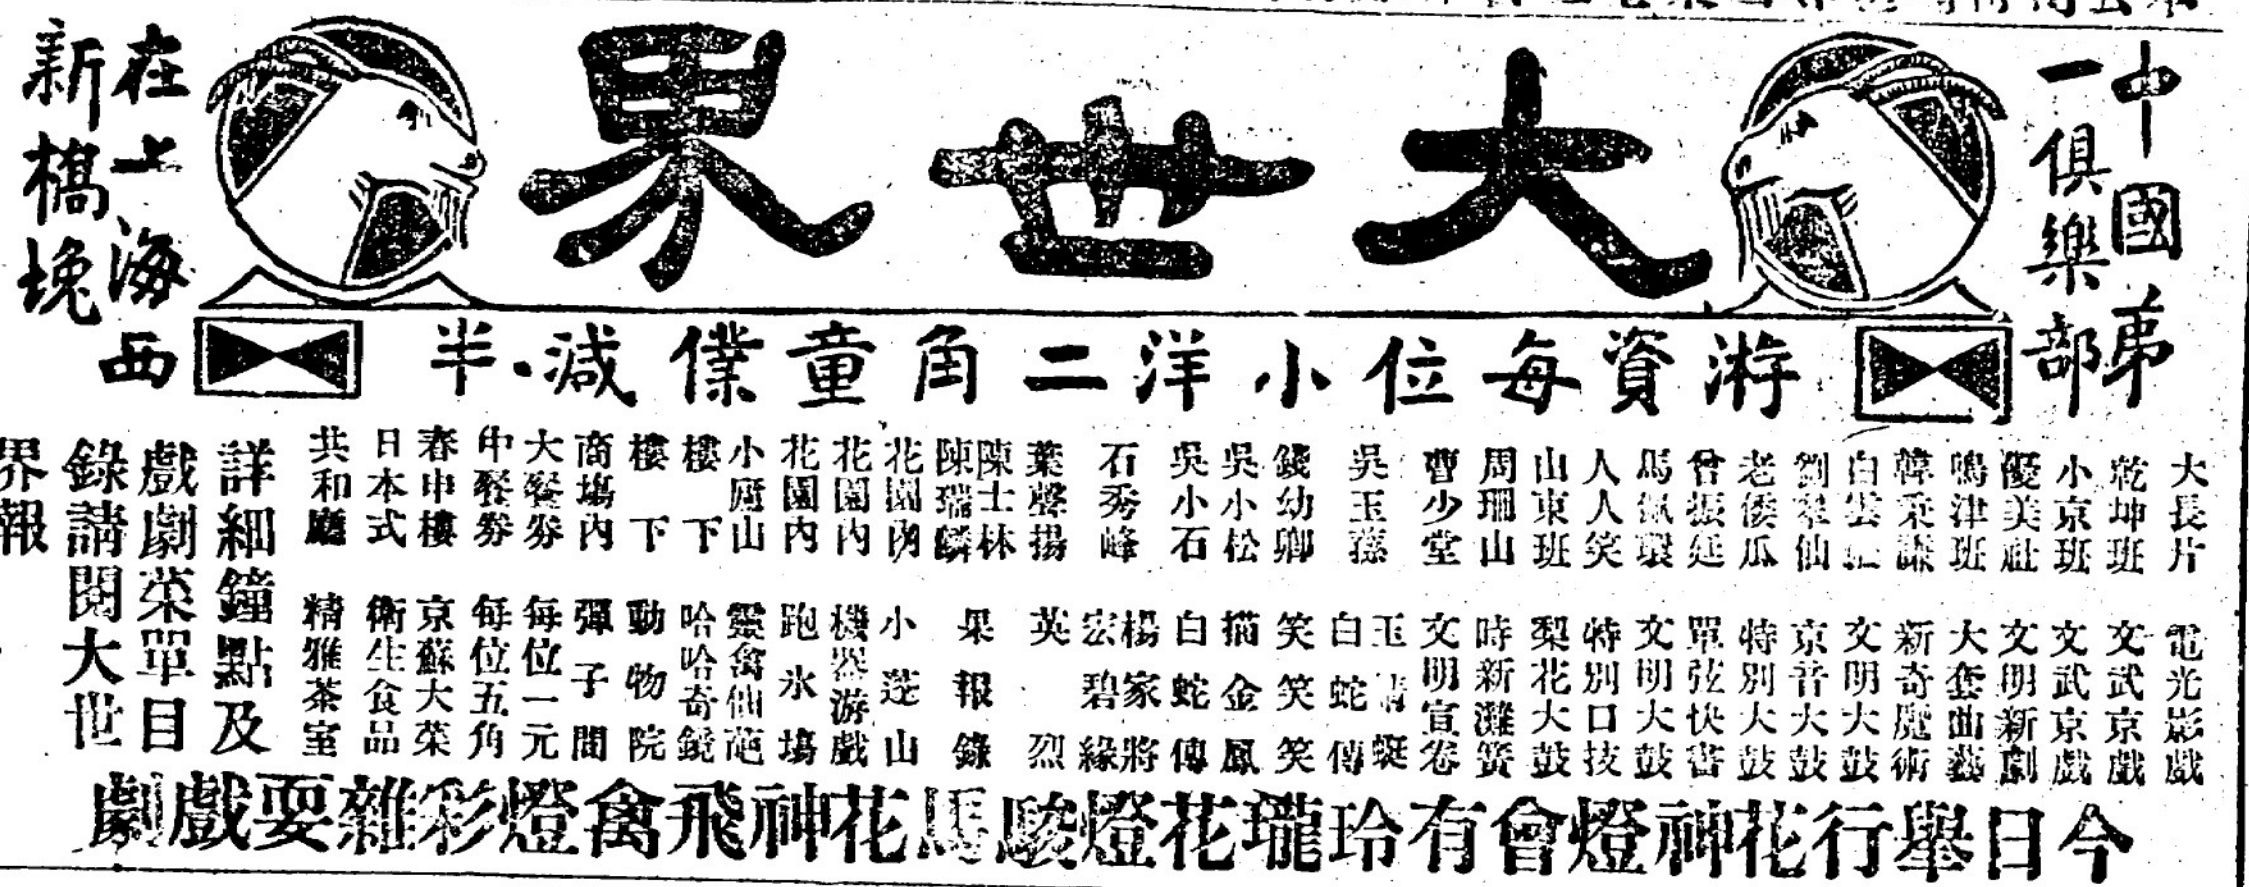 大世界
中國弟
一俱樂部
在上海西
新橋堍
游資每位小洋二角童僕減半
大長片 電光影戲
乾坤班 文武京戲
小京班 文武京戲
優美社 文明新劇
鳴津班 大套曲藝
韓秉謙 新奇魔術
白雲 文明大鼓
劉翠仙 京音大鼓
老倭瓜 特別大鼓
曾振廷 單弦快書
馬佩環 文明大鼓
人人笑 特別口技
山東班 梨花大鼓
周珊山 時新灘簧
曹少堂 文明宣卷
吳玉蓀 玉蜻蜓 白蛇傳
錢幼卿 笑笑笑
吳小松 描金鳳
吳小石 白蛇傳
石秀峰 楊家將 宏碧緣
葉聲揚 英烈
陳士林 陳瑞麟 果報錄
花園內 小蓬山
花園內 機器游戲
花園內 跑氷場
小廬山 靈禽仙葩
樓下 哈哈奇鏡
樓下 動物院
商塲內 彈子間
大餐券 每位一元
中餐券 每位五角
春申樓 京蘇大菜
日本式 衛生食品
共和廳 精雅茶室
詳細鐘點及
戲劇菜單目
錄請閱大世
界報
今日舉行花神燈會有玲瓏花燈駿馬花神飛禽燈彩雜耍戲劇